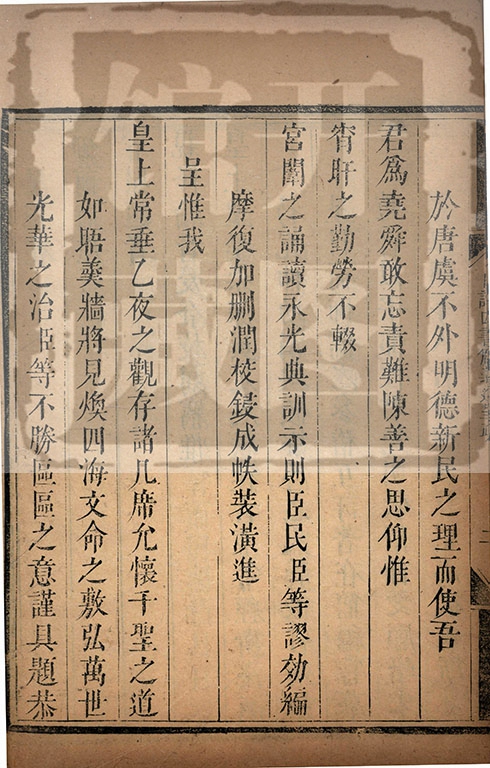 於唐虞不外明德新民之理而使吾
君爲堯舜敢忘責難陳善之思仰惟
宵旰之勤勞不輟
宮闈之誦讀永光典訓示則臣民臣等謬効編
摩復加刪潤校鋟成帙裝潢進
呈惟我
皇上常垂乙夜之觀存諸几席允懷千聖之道
如晤羹牆將見煥四海文命之敷弘萬世
光華之治臣等不勝區區之意謹具題恭